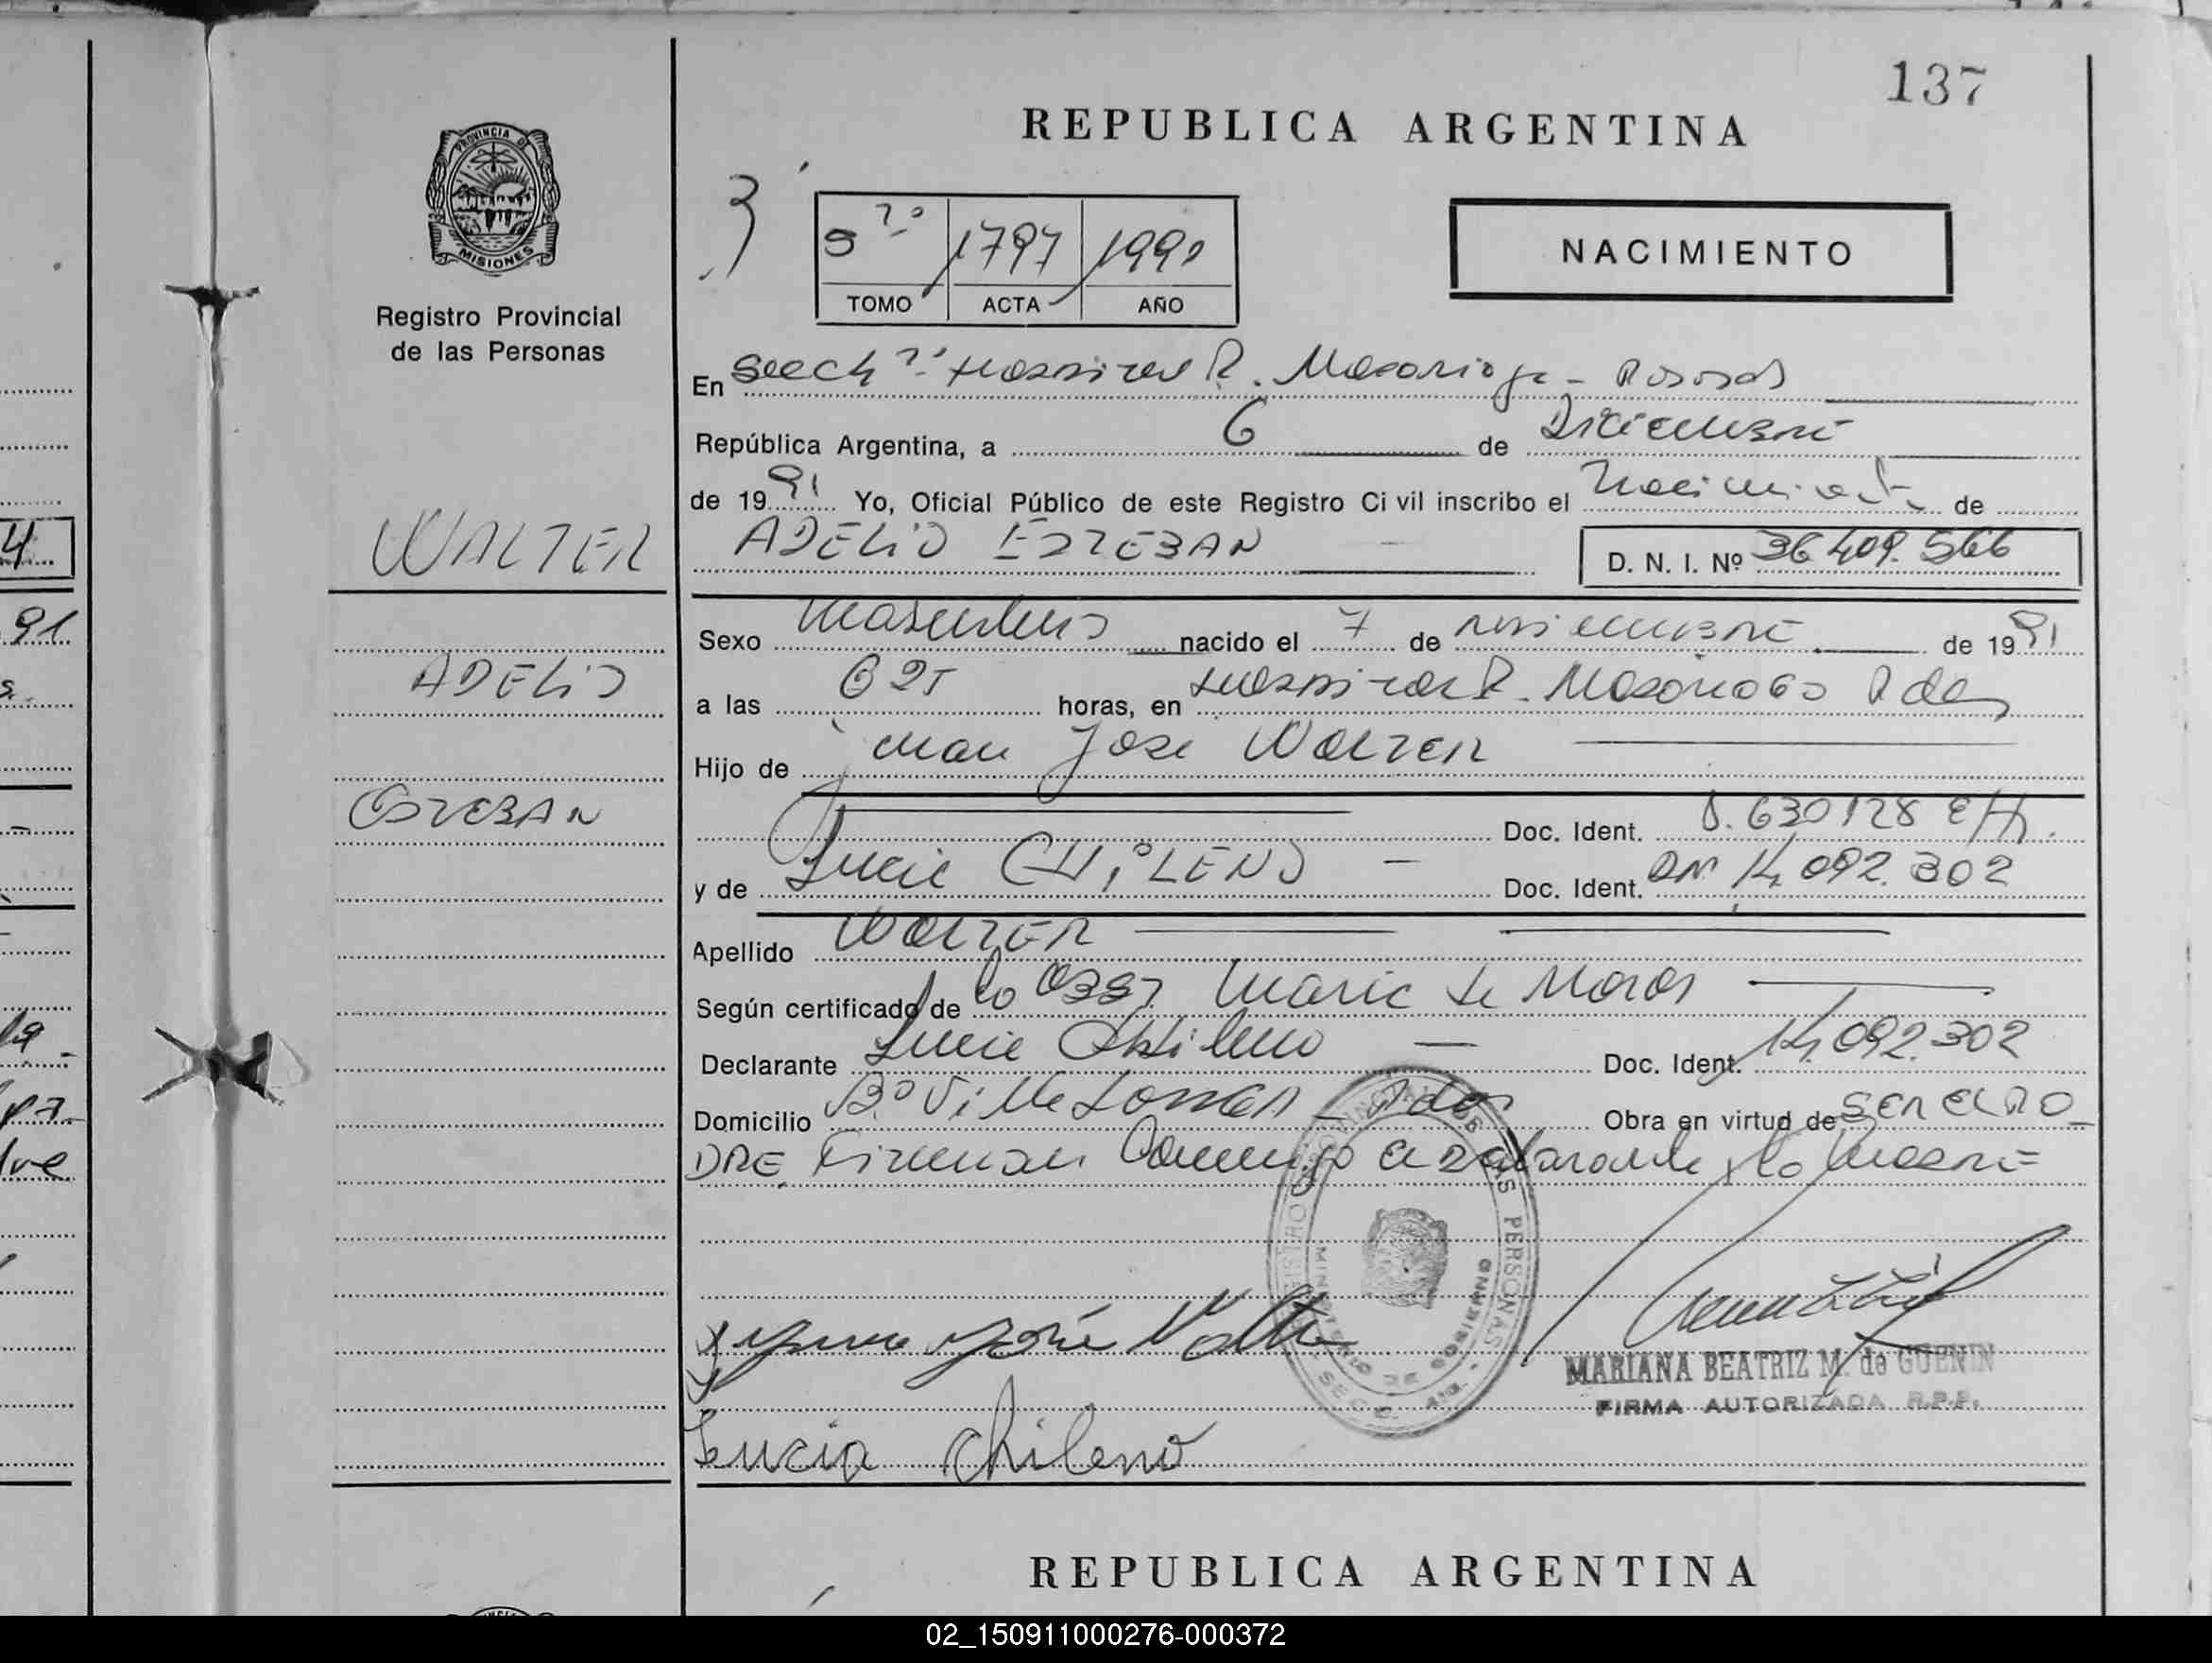 137
REPUBLICA ARGENTINA
PROVINCIA DE
MISIONES
Registro Provincial
de las Personas
3
5 1797 1991
TOMO ACTA AÑO
NACIMIENTO
En Secc 4 Hospital R. Madariaga - Posadas
República Argentina, a 6 de Diciembre
de 1991 Yo, Oficial Público de este Registro Civil inscribo el nacimiento de
ADELIO ESTEBAN D. N. I. Nº 36 409.566
WALTER
ADELIO
ESTEBAN
Sexo masculino nacido el 7 de noviembre de 1991
a las horas, en Hospital R. Madariaga Pdas
Hijo de Juan José WALTER
Doc. Ident. 630128
y de Lucia CHILENO - Doc. Ident. 14.092.302
Apellido WALTER
Según certificado de la Obst Maria de
Declarante Lucia Chileno - Doc. Ident. 14.092.302
Domicilio Bº Villa - Pdas Obra en virtud de ser el PA-
DRE, Firman Conmigo el declarante y la Madre
REGISTRO PROVINCIAL DE LAS PERSONAS
MINISTERIO DE GOBIERNO
Juan José Walter
MARIANA BEATRIZ M. de GUENIN
FIRMA AUTORIZADA R.P.P.
Lucia Chileno
REPUBLICA ARGENTINA
4
91
s.
02_150911000276-000372